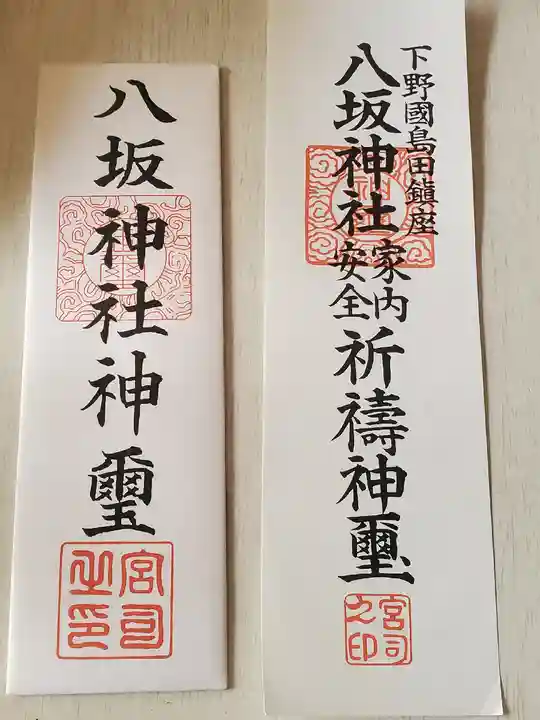 下野國島田鎮座
八坂神社家内安全祈禱神璽
宮司之印
八坂神社神璽
宮司之印